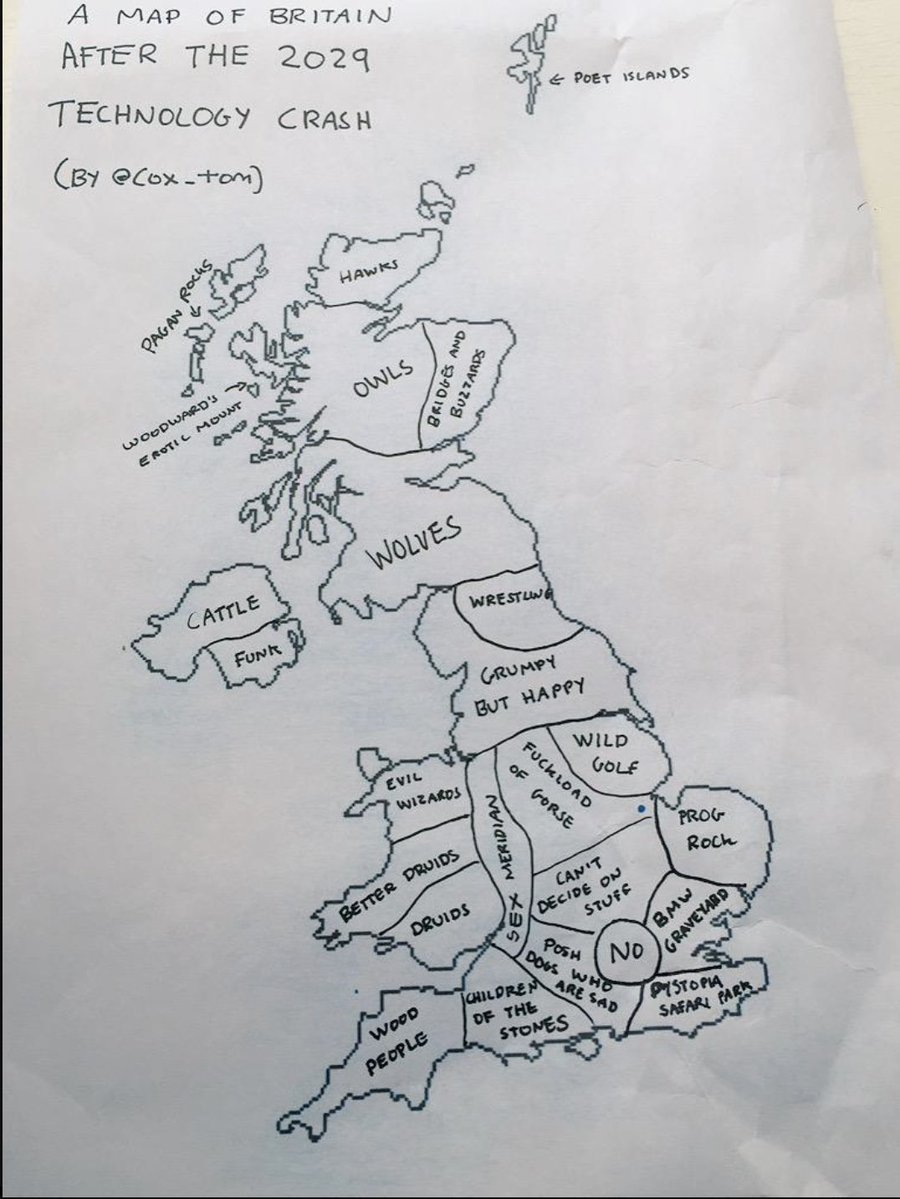 A MAP OF BRITAIN
AFTER THE 2029
TECHNOLOGY CRASH
(BY @COX_tom)
← POET ISLANDS
HAWKS
PAGAN ROCKS
OWLS
BRIDGES AND
BUZZARDS
WOODWARD'S
EROTIC MOUNT
WOLVES
CATTLE
FUNK
WRESTLING
GRUMPY
BUT HAPPY
WILD
GOLF
FUCKLOAD
OF GORSE
EVIL
WIZARDS
SEX MERIDIAN
PROG
ROCK
BETTER DRUIDS
CAN'T
DECIDE ON
STUFF
DRUIDS
BMW
GRAVEYARD
NO
POSH
DOGS WHO
ARE SAD
DYSTOPIA
SAFARI PARK
CHILDREN
OF THE
STONES
WOOD
PEOPLE